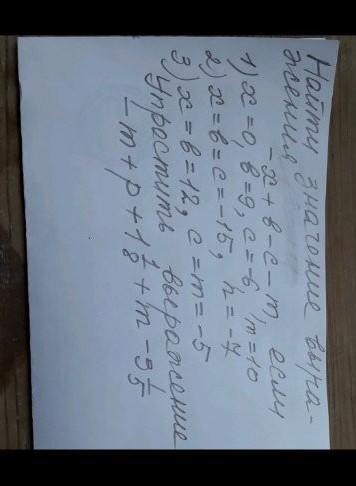 Найти значение выра-
жения -x + в - c - m, если
1) x = 0, в = 9, c = -6, m = 10
2) x = в = c = -15, n = -7
3) x = в = 12, c = m = -5
Упростить выражение
- m + p + 1 1/8 + m - 9 1/5